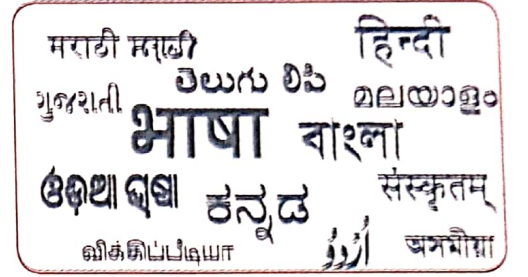 मराठी मराठी
हिन्दी
తెలుగు లిపి
ગુજરાતી
മലയാളം
भाषा
বাংলা
ଓଡ଼ିଆ ଭାଷା
ಕನ್ನಡ
संस्कृतम्
விக்கிப்பீடியா
اُردُو
অসমীয়া